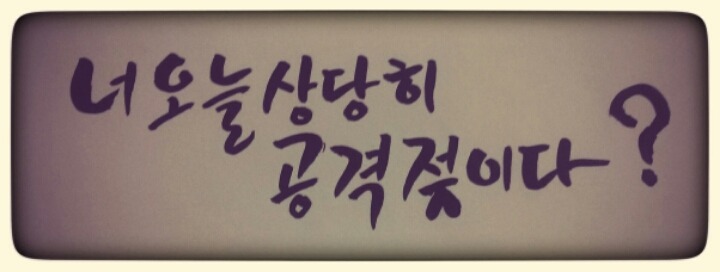 너 오늘 상당히
공격젖이다?